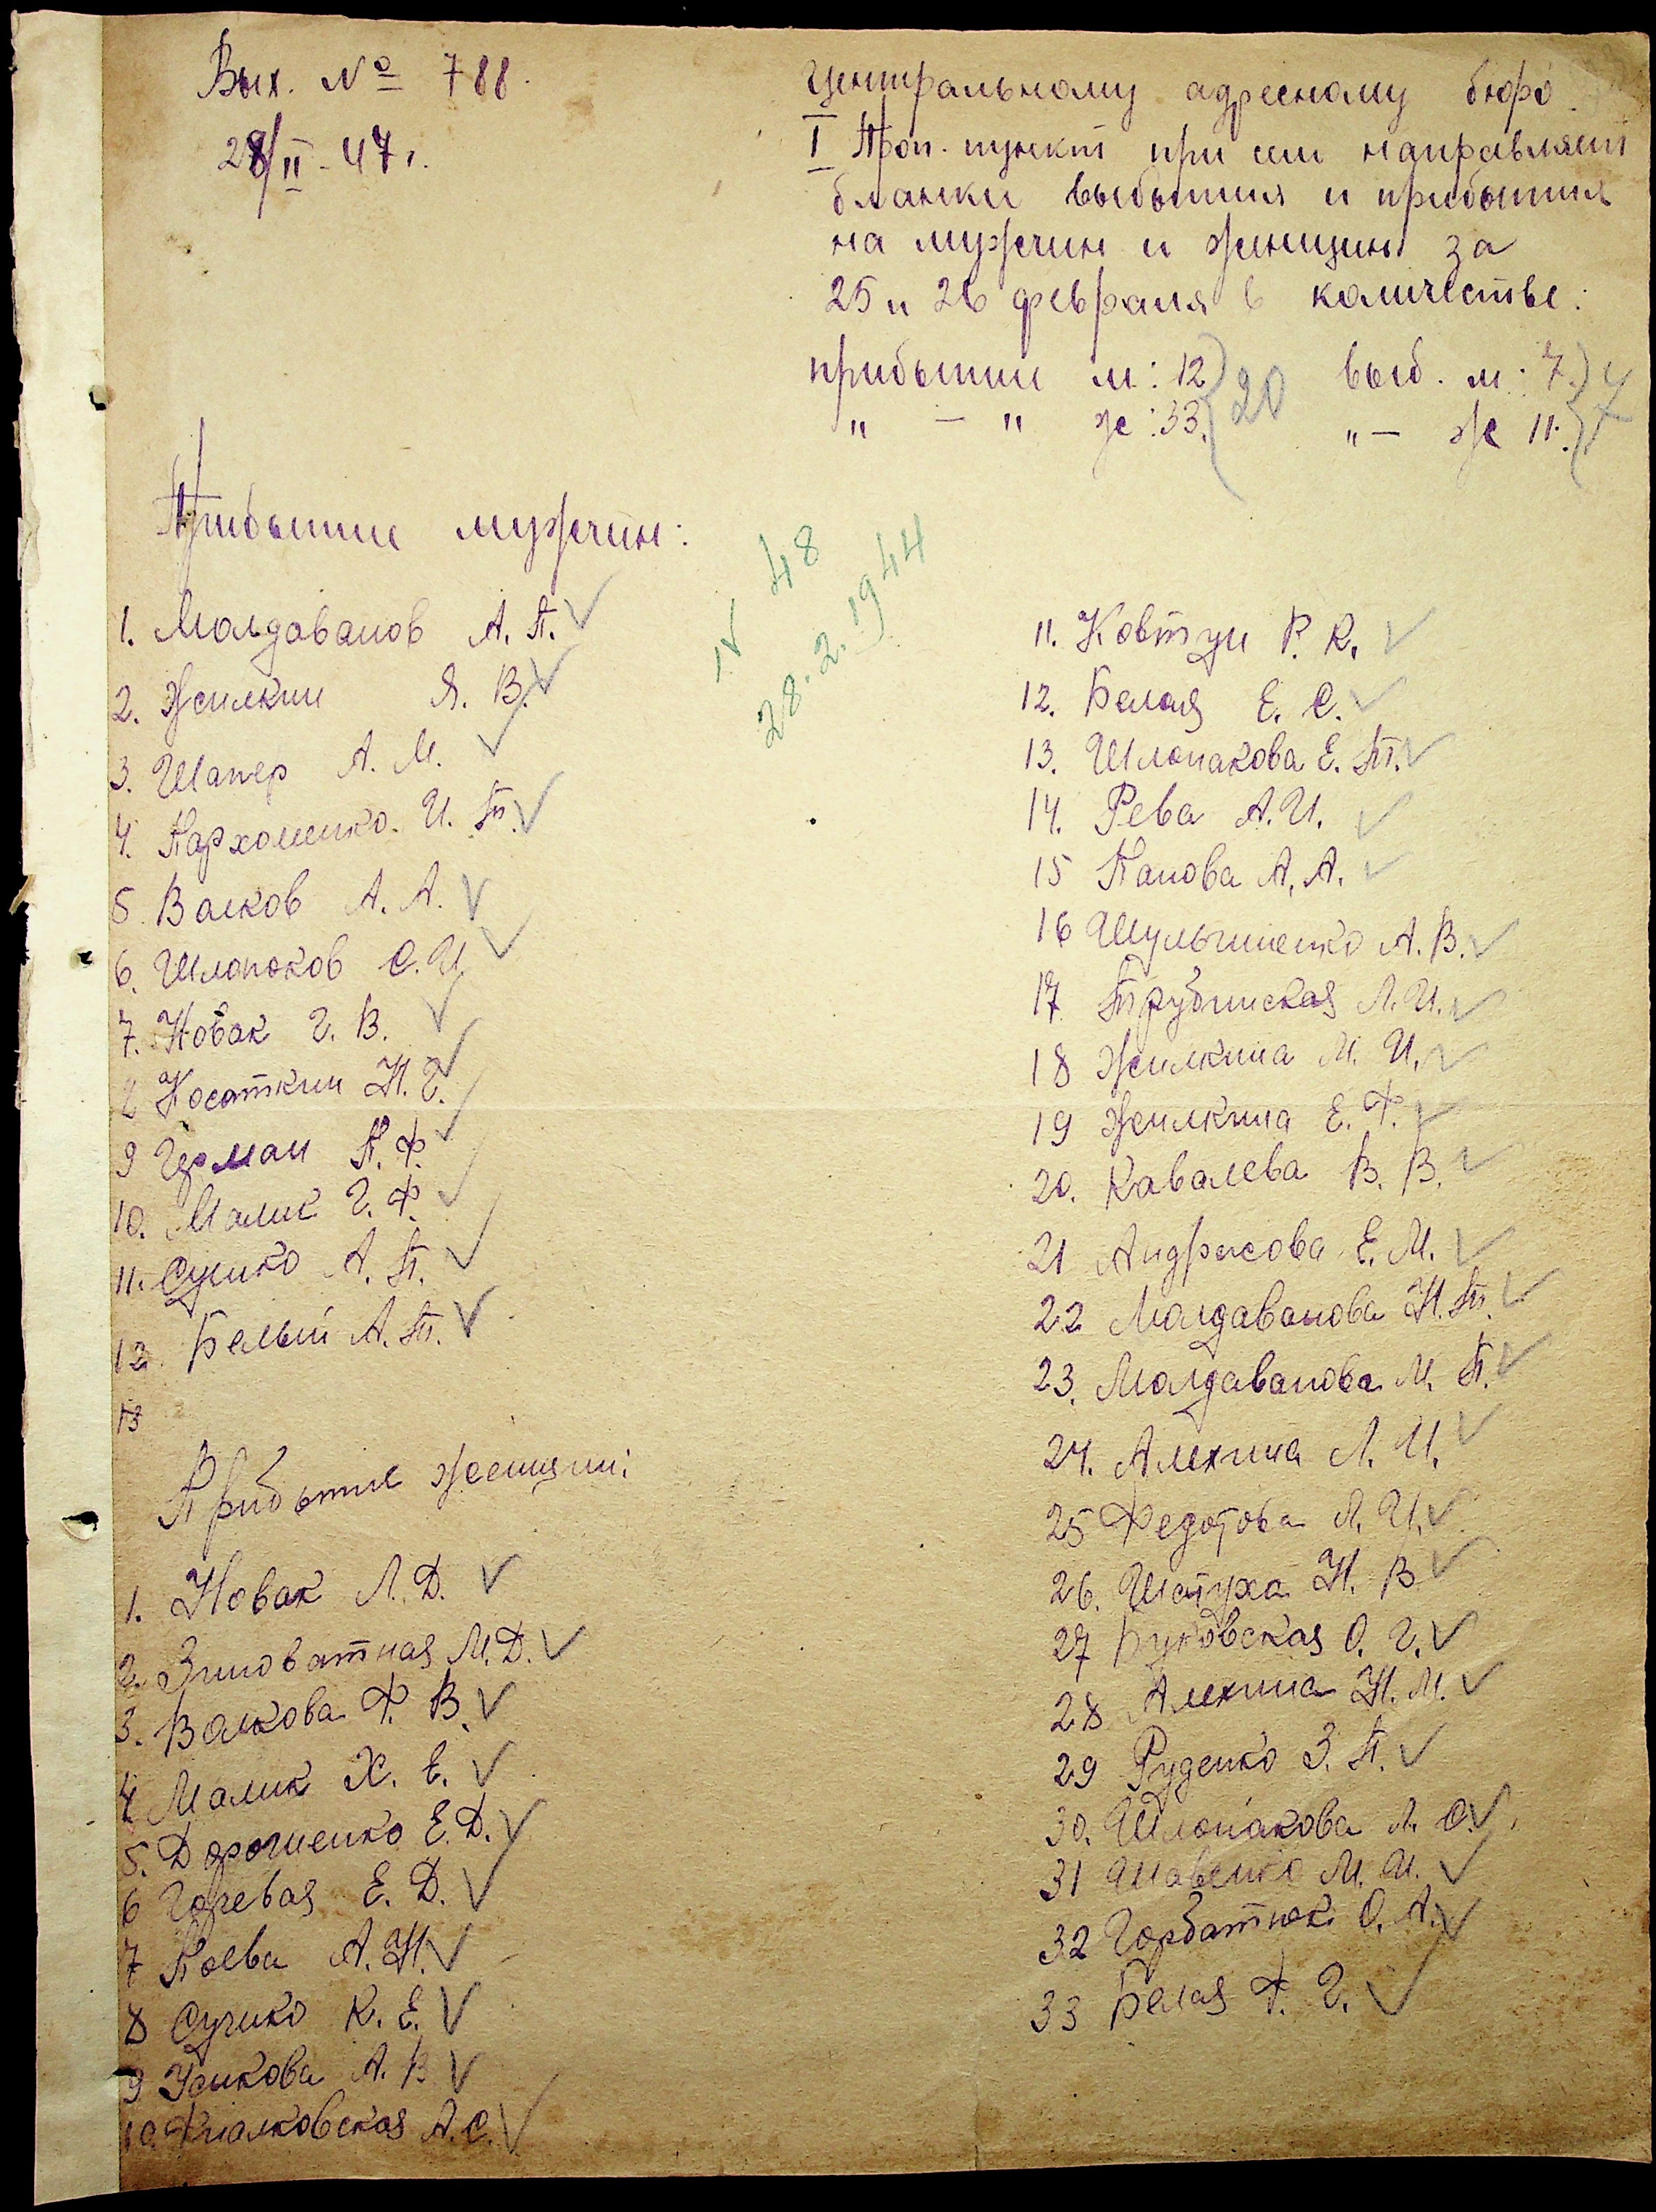 Вых. № 788.
28/II-47г.
Центральному адресному бюро.
I Проп. пункт при сем направляет
бланки выбытия и прибытия
на мужчин и женщин за
25 и 26 февраля в количестве:
прибытии м: 12 20 выб. м: 7.
" — " ж: 33. " — ж 11.
Прибытие мужчин:
IV 48
28.2.1944
1. Молдованов А. П.
2. Жилкин Я. В.
3. Шапер А. М.
4. Пархоменко. И. П.
5. Валков А. А.
6. Шлопоков С. И.
7. Новак Г. В.
8 Косаткин Н. Г.
9 Герман П. Ф.
10. Малик Г. Ф.
11. Сушко А. П.
12. Белый А. П.
13
Прибытие женщин:
1. Новак Л. Д.
2. Зиноватная М. Д.
3. Валкова Ф. В.
4 Малик Х. Е.
5. Дорошенко Е. Д.
6 Горевая Е. Д.
7 Поева А. Н.
8 Сушко К. Е.
9 Усикова А. В
10. Фиалковская А. С.
11. Ковтун Р. К.
12. Белая Е. С.
13. Шлопакова Е. П.
14. Рева А. И.
15 Панова А. А.
16 Шульшенко А. В.
17 Трубинская Л. И.
18 Жилкина М. И.
19 Жилкина Е. Ф.
20. Кавалева В. В.
21 Андрисова Е. М.
22 Молдаванова Н. П.
23. Молдаванова М. П.
24. Алехина Л. И.
25 Федотова Л. И.
26. Шатуха Н. В
27 Буковская О. Г.
28 Алехина Н. М.
29 Руденко З. П.
30. Шлопакова А. О.
31 Шавенко М. И.
32 Горбатюк О. А.
33 Белая Ф. Г.